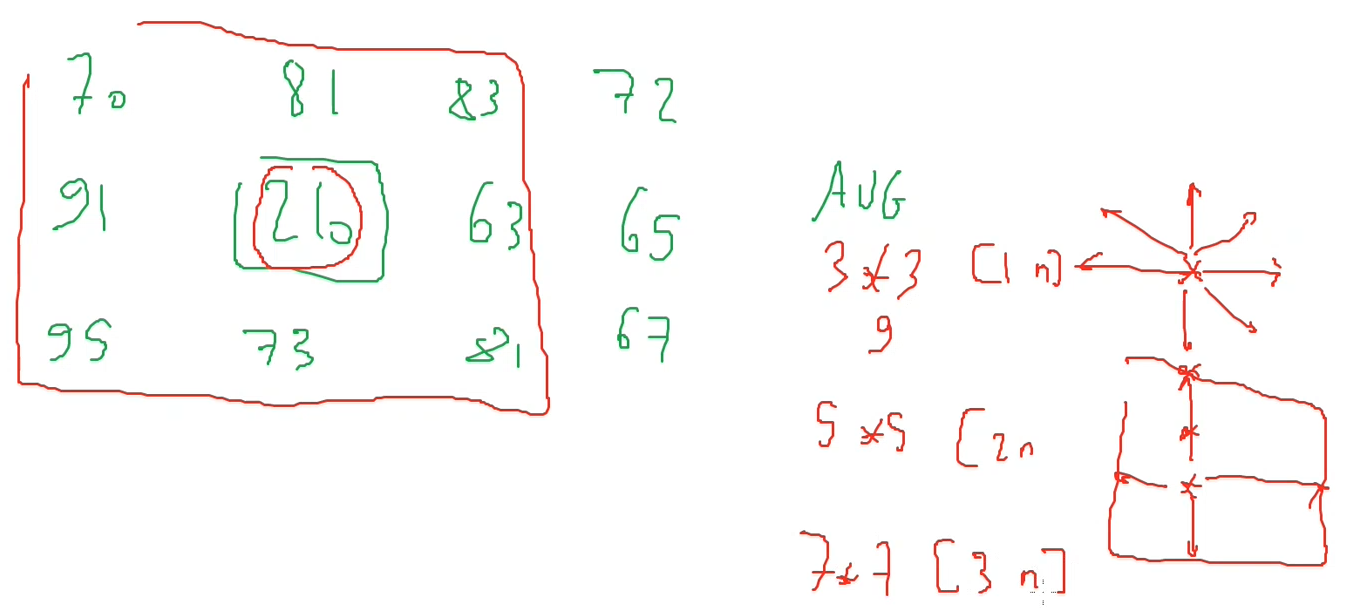 70 81 83 72
91 210 63 65
95 73 81 67
AVG
3*3 [1 n]
9
5*5 [2n
7*7 [3 n]